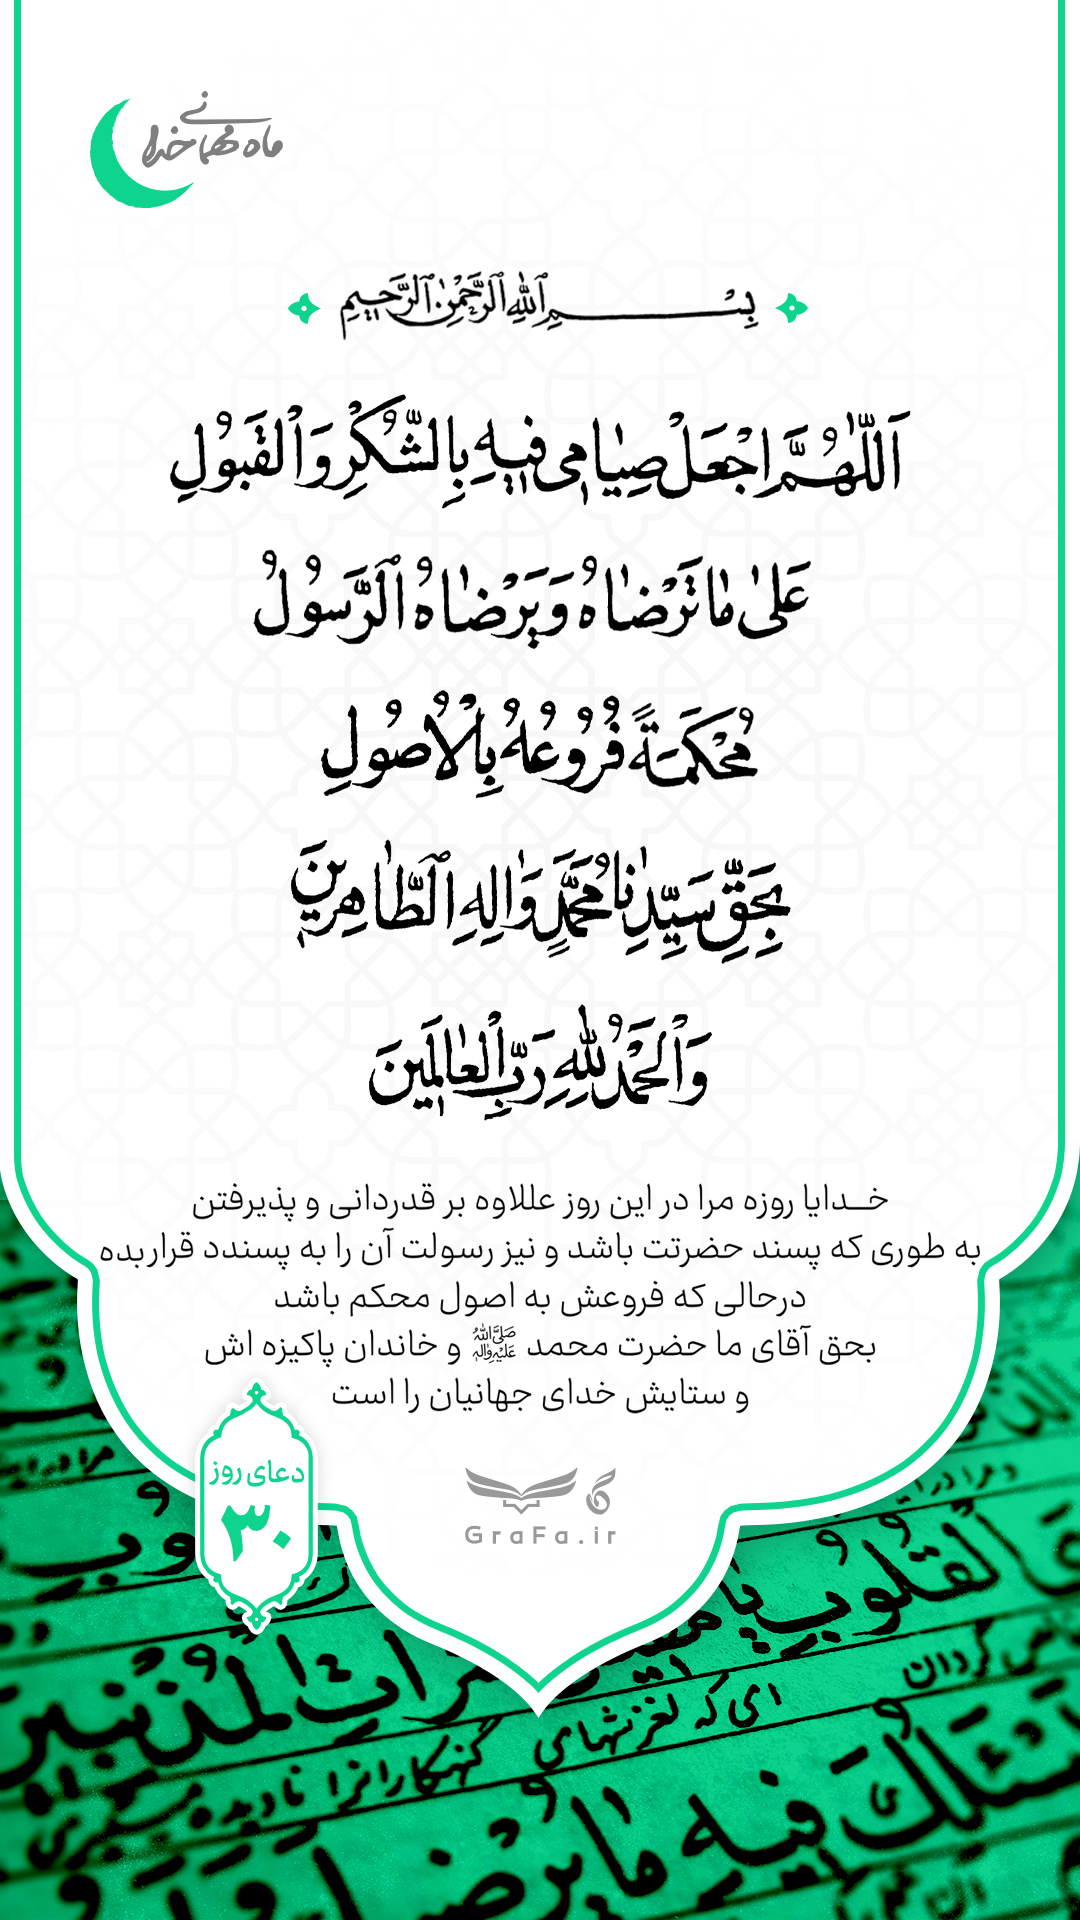 ماه مهمانی خدا
بِسْمِ ٱللّٰهِ ٱلرَّحْمٰنِ ٱلرَّحیمِ
اَللّٰهُمَّ اجْعَلْ صِیٰامی فیهِ بِالشُّکْرِ وَالْقَبُولِ
عَلیٰ مٰا تَرْضٰاهُ وَیَرْضٰاهُ الرَّسُولُ
مُحْکَمَةً فُرُوعُهُ بِالْاُصُولِ
بِحَقِّ سَیِّدِنٰا مُحَمَّدٍ وَاٰلِهِ الطّٰاهِرینَ
وَالْحَمْدُ لِلّٰهِ رَبِّ الْعٰالَمینَ
خـدایا روزه مرا در این روز عللاوه بر قدردانی و پذیرفتن
به طوری که پسند حضرتت باشد و نیز رسولت آن را به پسندد قراربده
درحالی که فروعش به اصول محکم باشد
بحق آقای ما حضرت محمد ﷺ و خاندان پاکیزه اش
و ستایش خدای جهانیان را است
دعای روز
۳۰
GraFa.ir
اَلْقُلُوبِ یٰا
اَلْمُذْنِبینَ
ای که لغزشهای گنهکارانرا نادیده
فیهِ مٰا یُرْضیٖ